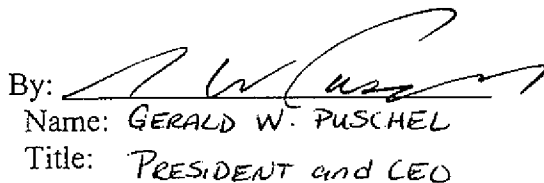 By:
Name: GERALD W. PUSCHEL
Title: PRESIDENT and CEO